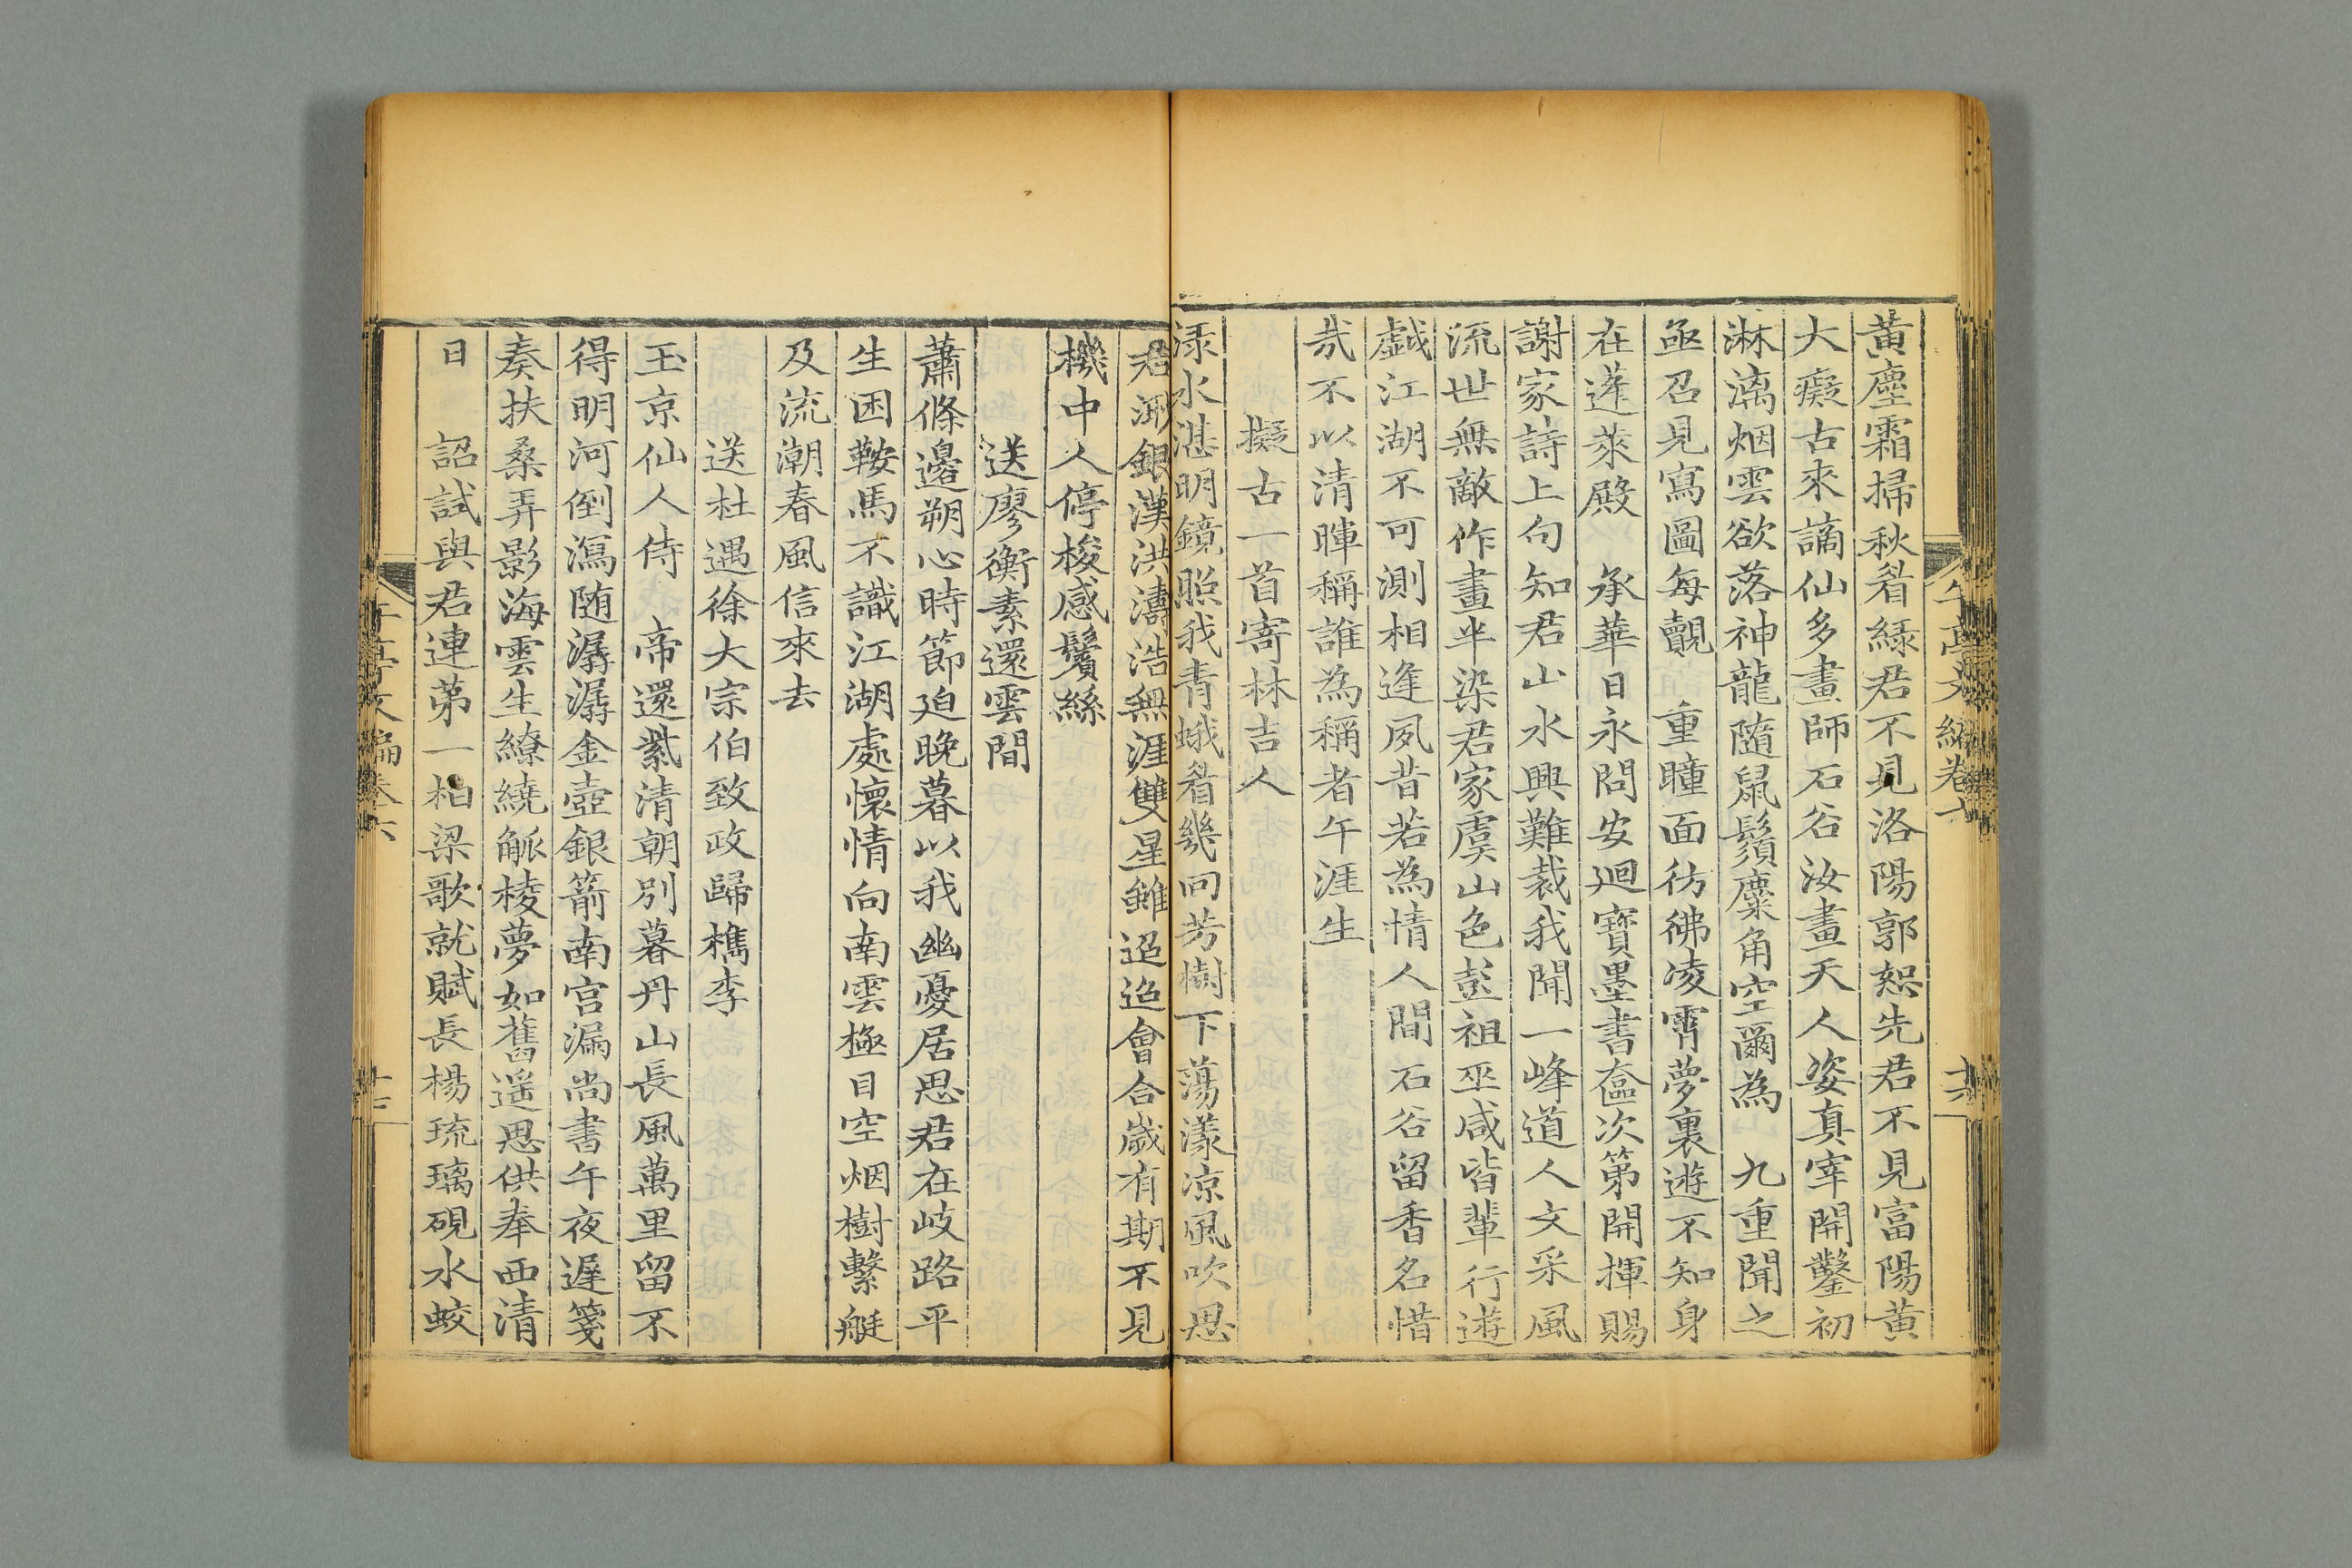 黃塵霜掃秋眉綠君不見洛陽郭恕先君不見富陽黃
大癡古來謫仙多畫師石谷汝畫天人姿真宰開鑿初
淋漓烟雲欲落神龍隨鼠鬚麋角空爾為　九重聞之
亟召見寫圖每覿　重瞳面彷彿凌霄夢裏遊不知身
在蓬萊殿　承華日永問安迴寶墨書奩次第開揮賜
謝家詩上句知君山水興難裁我聞一峰道人文采風
流世無敵作畫半染君家虞山色彭祖巫咸皆輩行遊
戲江湖不可測相逢夙昔若為情人間石谷留香名惜
哉不以清暉稱誰為稱者午涯生
擬古一首寄林吉人
淥水湛明鏡照我青蛾眉幾回芳樹下蕩漾涼風吹思
君溯銀漢洪濤浩無涯雙星雖迢迢會合歲有期不見
機中人停梭感鬢絲
送廖衡素還雲間
蕭條邊朔心時節迫晚暮以我幽憂居思君在岐路平
生困鞍馬不識江湖處懷情向南雲極目空烟樹繫艇
及流潮春風信來去
送杜遇徐大宗伯致政歸檇李
玉京仙人侍　帝還紫清朝別暮丹山長風萬里留不
得明河倒瀉随潺潺金壺銀箭南宮漏尚書午夜遲箋
奏扶桑弄影海雲生繚繞觚棱夢如舊遥思供奉西清
日　詔試與君連苐一柏梁歌就賦長楊琉璃硯水蛟
午亭文編卷六　十六
午亭文編卷六　十七